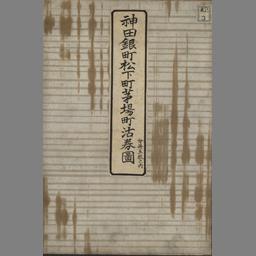 神田銀町松下町茅場町沽券圖